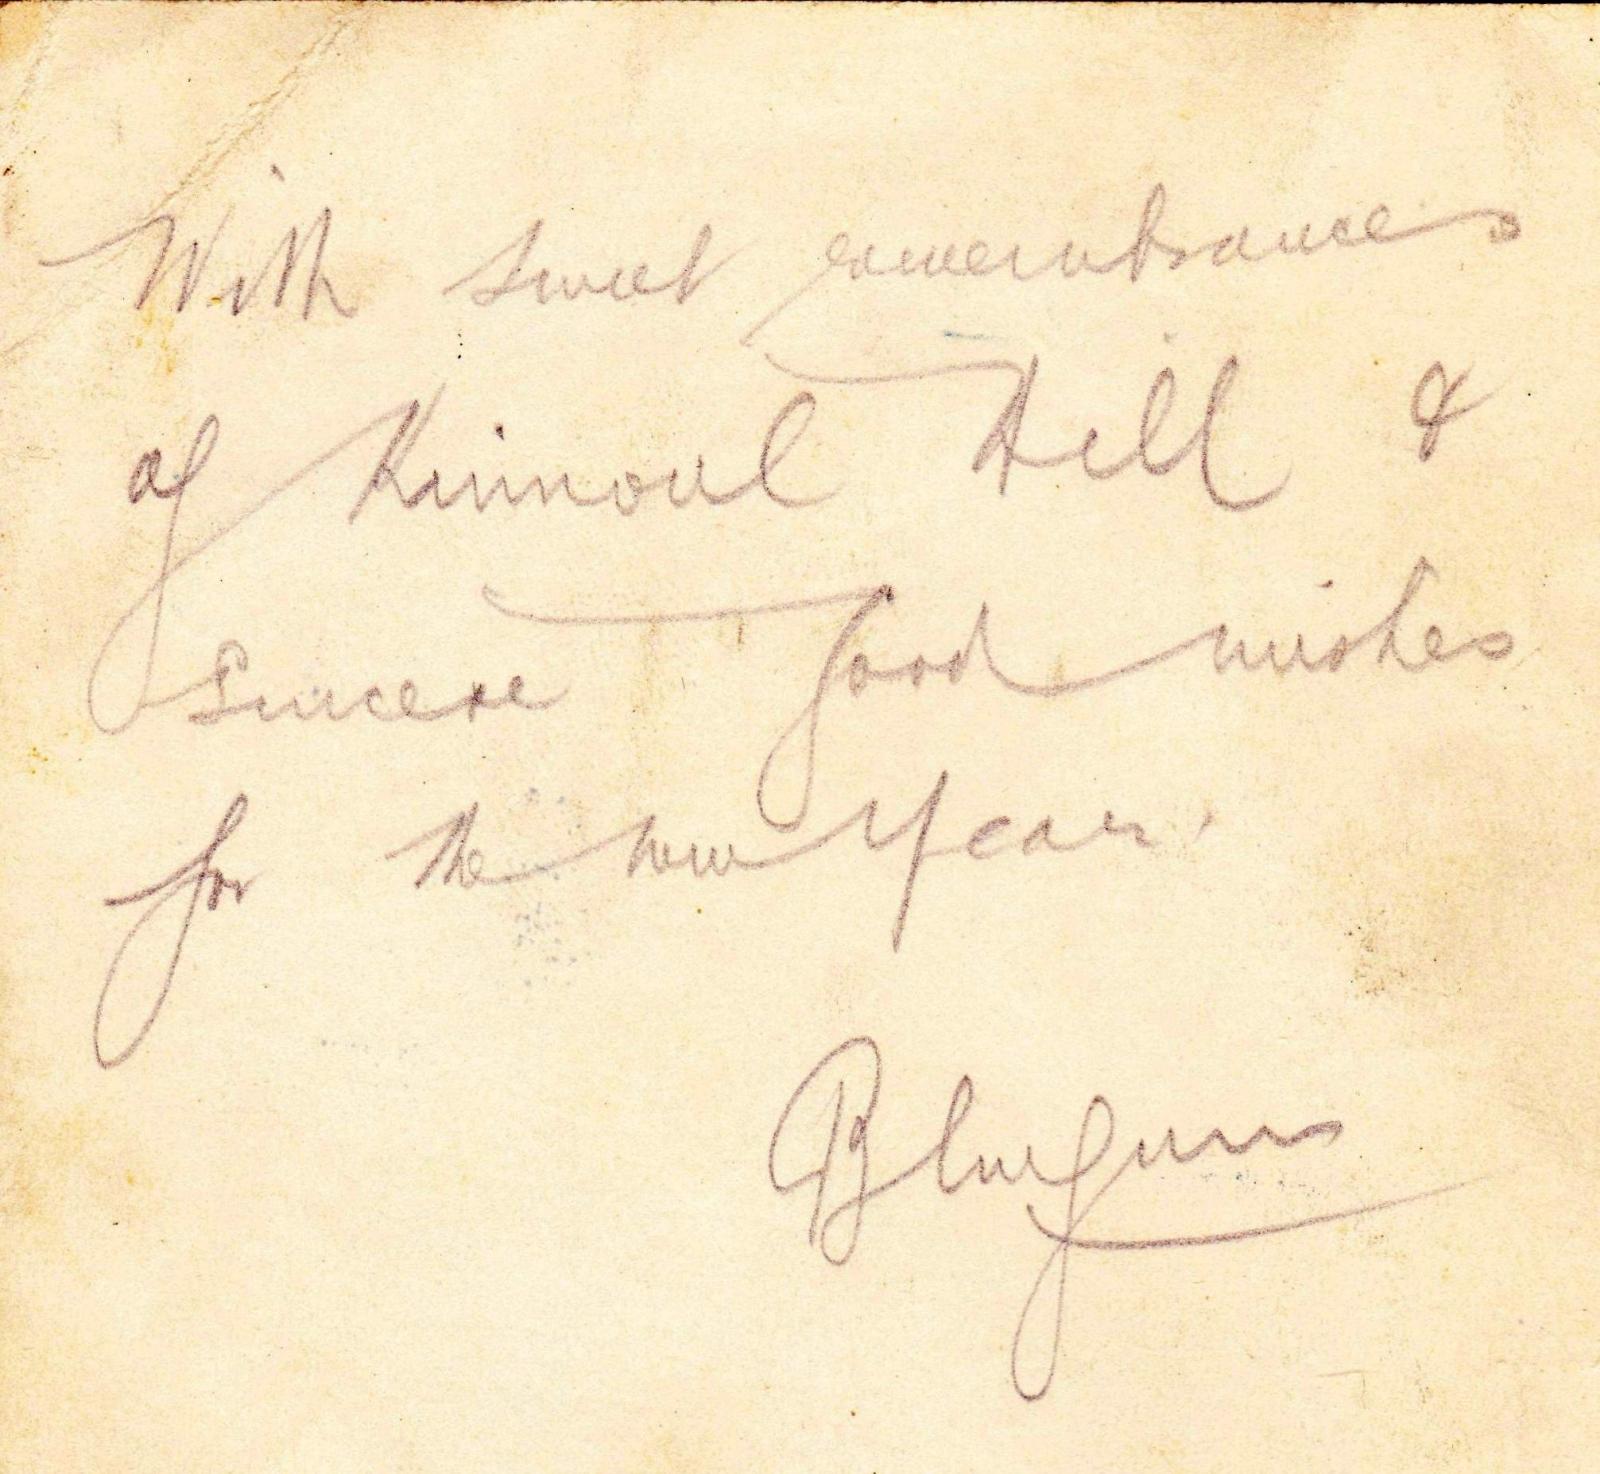 With sweet remembrances
of Kinnoul Hill &
Sincere good wishes
for the new Year.